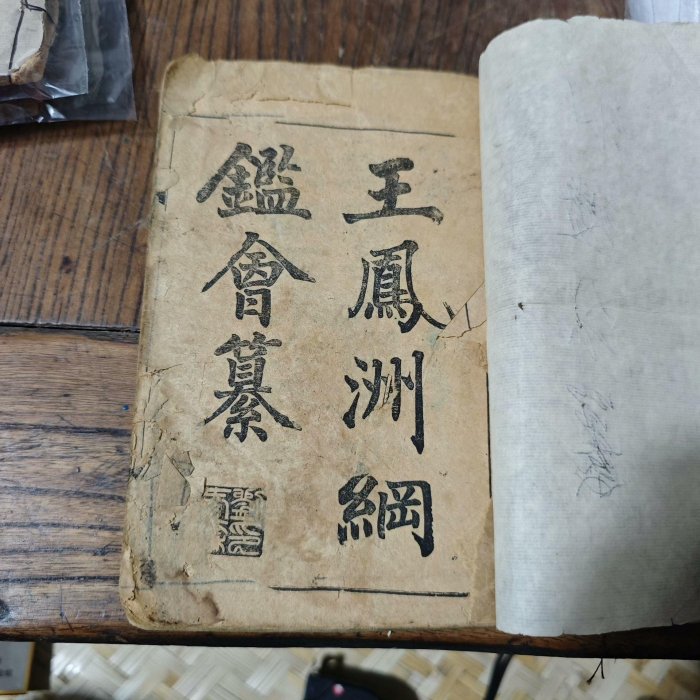 王鳳洲綱
鑑會纂